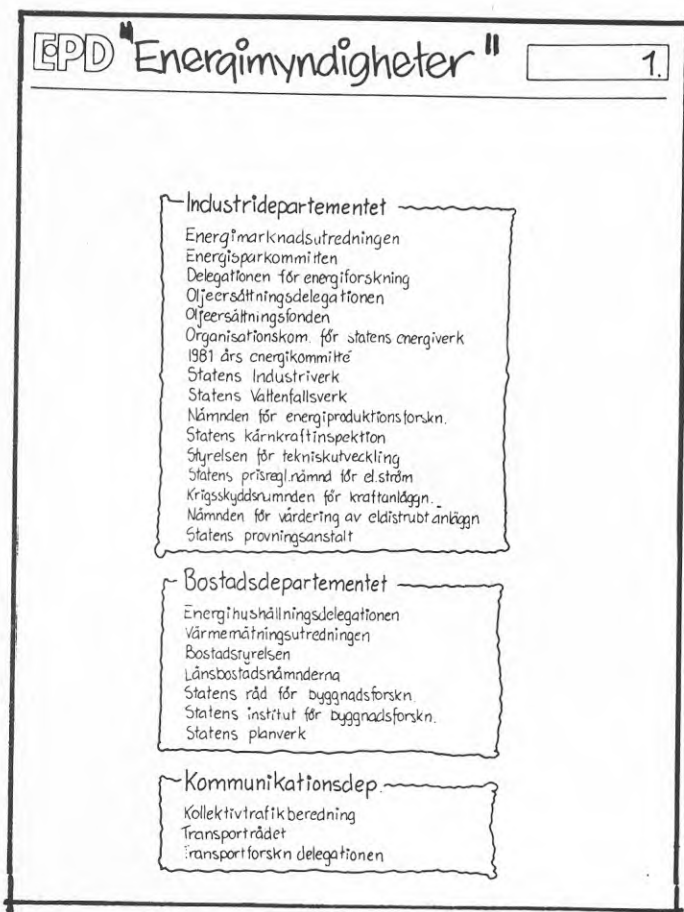 EPD "Energimyndigheter" 1.
Industridepartementet
Energimarknadsutredningen
Energisparkommitten
Delegationen för energiforskning
Oljeersättningsdelegationen
Oljeersättningsfonden
Organisationskom. för statens energiverk
1981 års energikommitté
Statens Industriverk
Statens Vattenfallsverk
Nämnden för energiproduktionsforskn.
Statens kärnkraftinspektion
Styrelsen för tekniskutveckling
Statens prisregl.nämnd för el.ström
Krigsskyddsnumnden för kraftanläggn.
Nämnden för värdering av eldistrubt anläggn
Statens provningsanstalt
Bostadsdepartementet
Energihushållningsdelegationen
Värmemätningsutredningen
Bostadstyrelsen
Länsbostadsnämnderna
Statens råd för byggnadsforskn.
Statens institut för byggnadsforskn.
Statens planverk
Kommunikationsdep.
Kollektivtrafikberedning
Transportrådet
Transportforskn delegationen